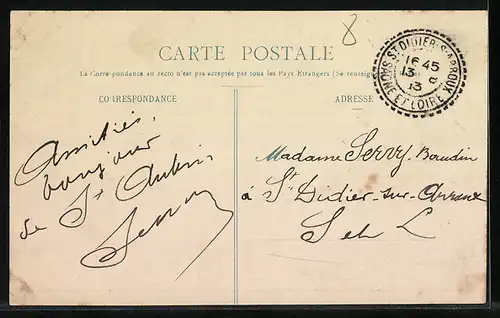 8
CARTE POSTALE
La Correspondance au recto n'est pas acceptée par tous les Pays Etrangers (Se renseigner
CORRESPONDANCE
ADRESSE
ST DIDIER-S-ARROUX
SAONE ET LOIRE
16 45
13
13
Amitiés,
bonjour
de St Aubin
Madame Serry-Baudin
à St Didier-sur-Arroux
S et L